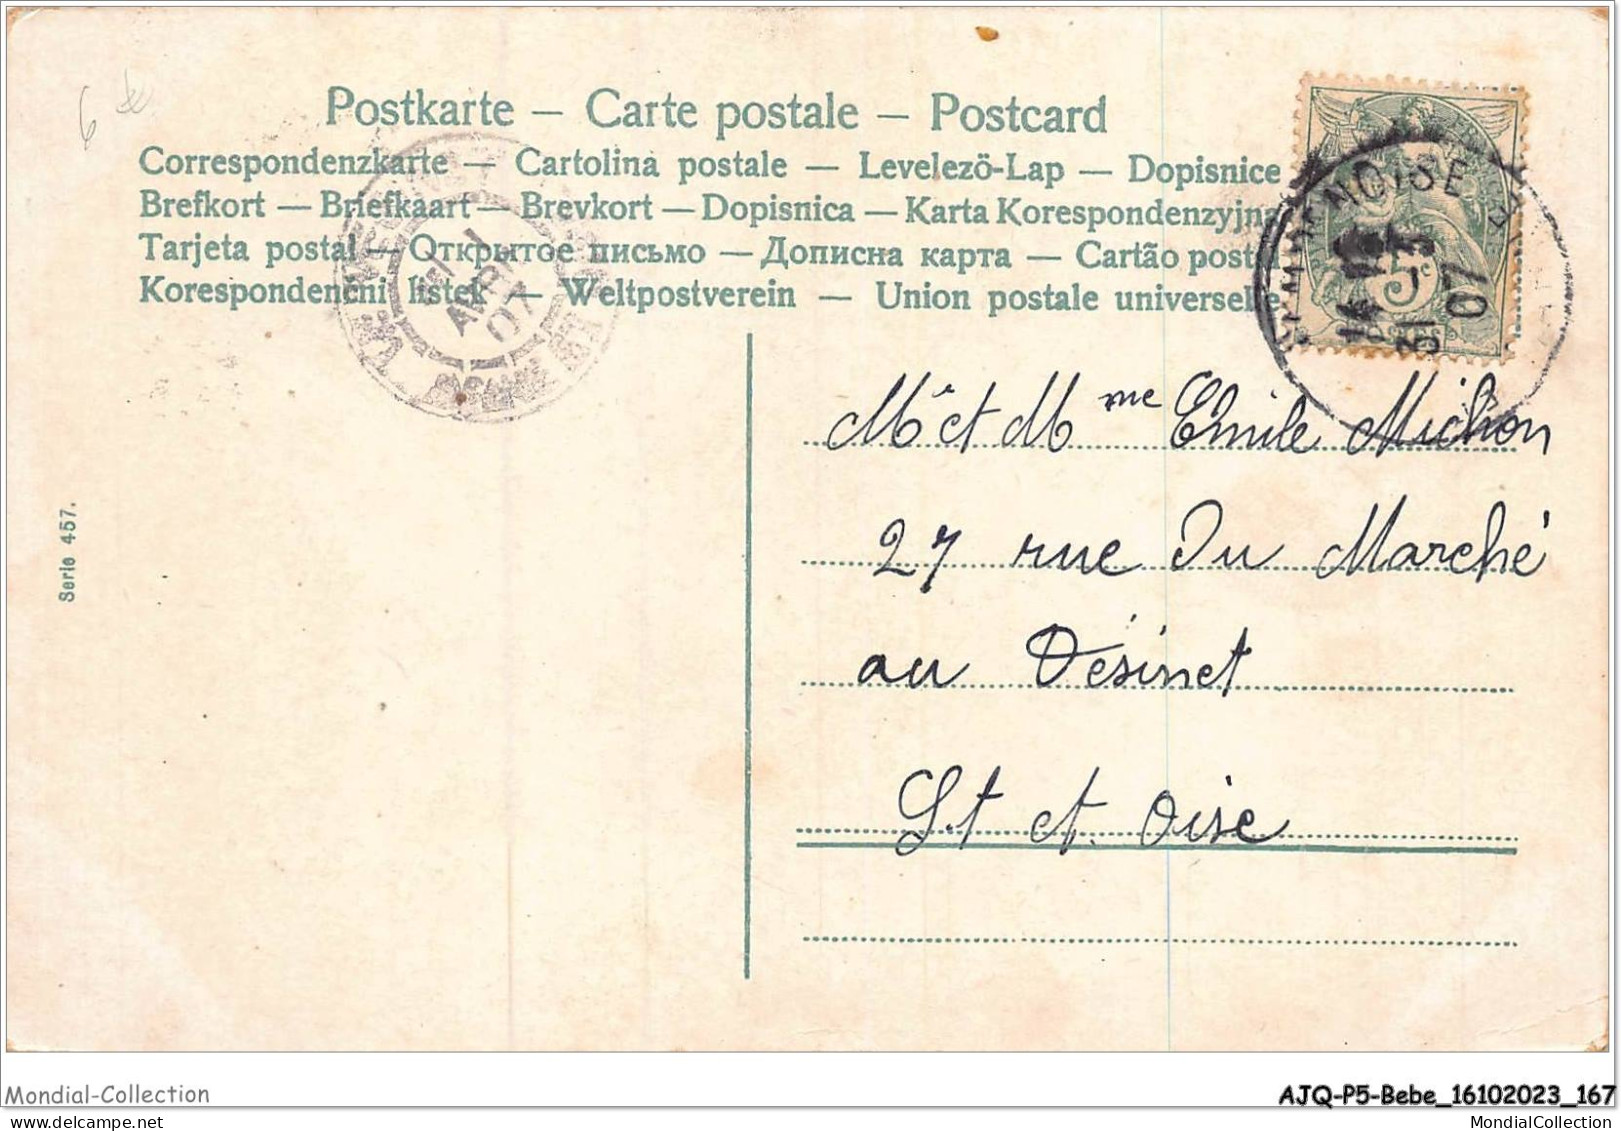 6
Postkarte – Carte postale – Postcard
Correspondenzkarte — Cartolina postale — Levelezö-Lap — Dopisnice
Brefkort — Briefkaart — Brevkort — Dopisnica — Karta Korespondenzyjna
Tarjeta postal — Открытое письмо — Дописна карта — Cartão postal
Korespondenčni listek — Weltpostverein — Union postale universelle
1
AVRIL
07
NOISE
31
07
5c
Mr et Mme Emile Michon
27 rue Du Marché
au Vésinet
St et Oise
Serie 457.
Mondial-Collection
AJQ-P5-Bebe_16102023_167
MondialCollection